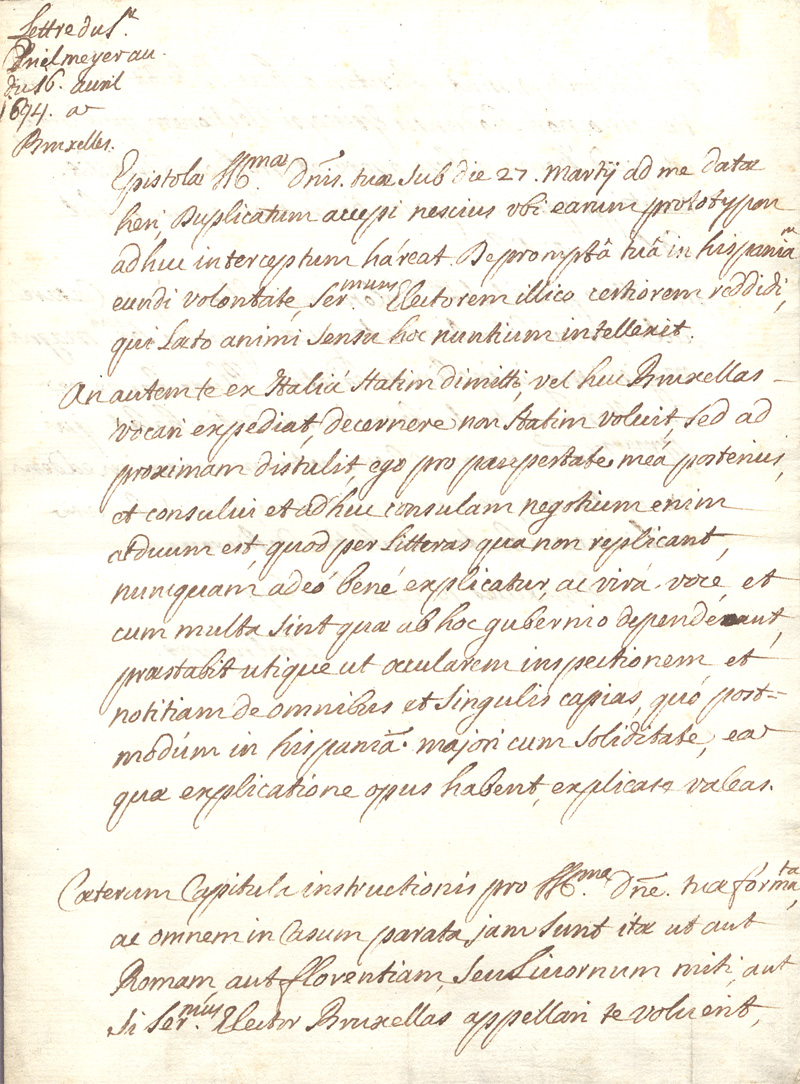 Lettre du Sr.
Prielmeyer au
du 16. avril
1694. a
Bruxelles.
Epistolæ Illmæ. Dnis. tuæ sub die 27. Martij ad me datæ
heri, Duplicatum accepi nescius ubi earum prototypon
adhuc interceptum hæreat. De promptâ tuâ in hispaniam
eundi volontate, sermum. Electorem illico certiorem reddidi,
qui Læto animi sensu hoc nuntium intellexit.
An autem te ex Italiâ statim dimitti, vel huc Bruxellas
vocari expediat, decernere non statim voluit, sed ad
proximam distulit, ego pro paupertate meâ posterius,
et consului et adhuc consulam negotium enim
arduum est, quod per Litteras quæ non replicant,
nunquam adeó bené explicatur, ac vivâ voce, et
cum multa sint quæ ab hoc gubernio dependeant,
præstabit utique ut ocularem inspectionem et
notitiam de omnibus et singulis capias, quó post=
modúm in hispaniâ. majori cum soliditate, ea
quæ explicatione opus habent, explicare valeas.
Cæterum Capitula instructionis pro Illma. Dne. tuæ formata,
ac omnem in Casum parata jam sunt ita ut aut
Romam, aut florentiam, seu Livornum miti, aut
si Sermus. Elector Bruxellas appellari te voluerit,